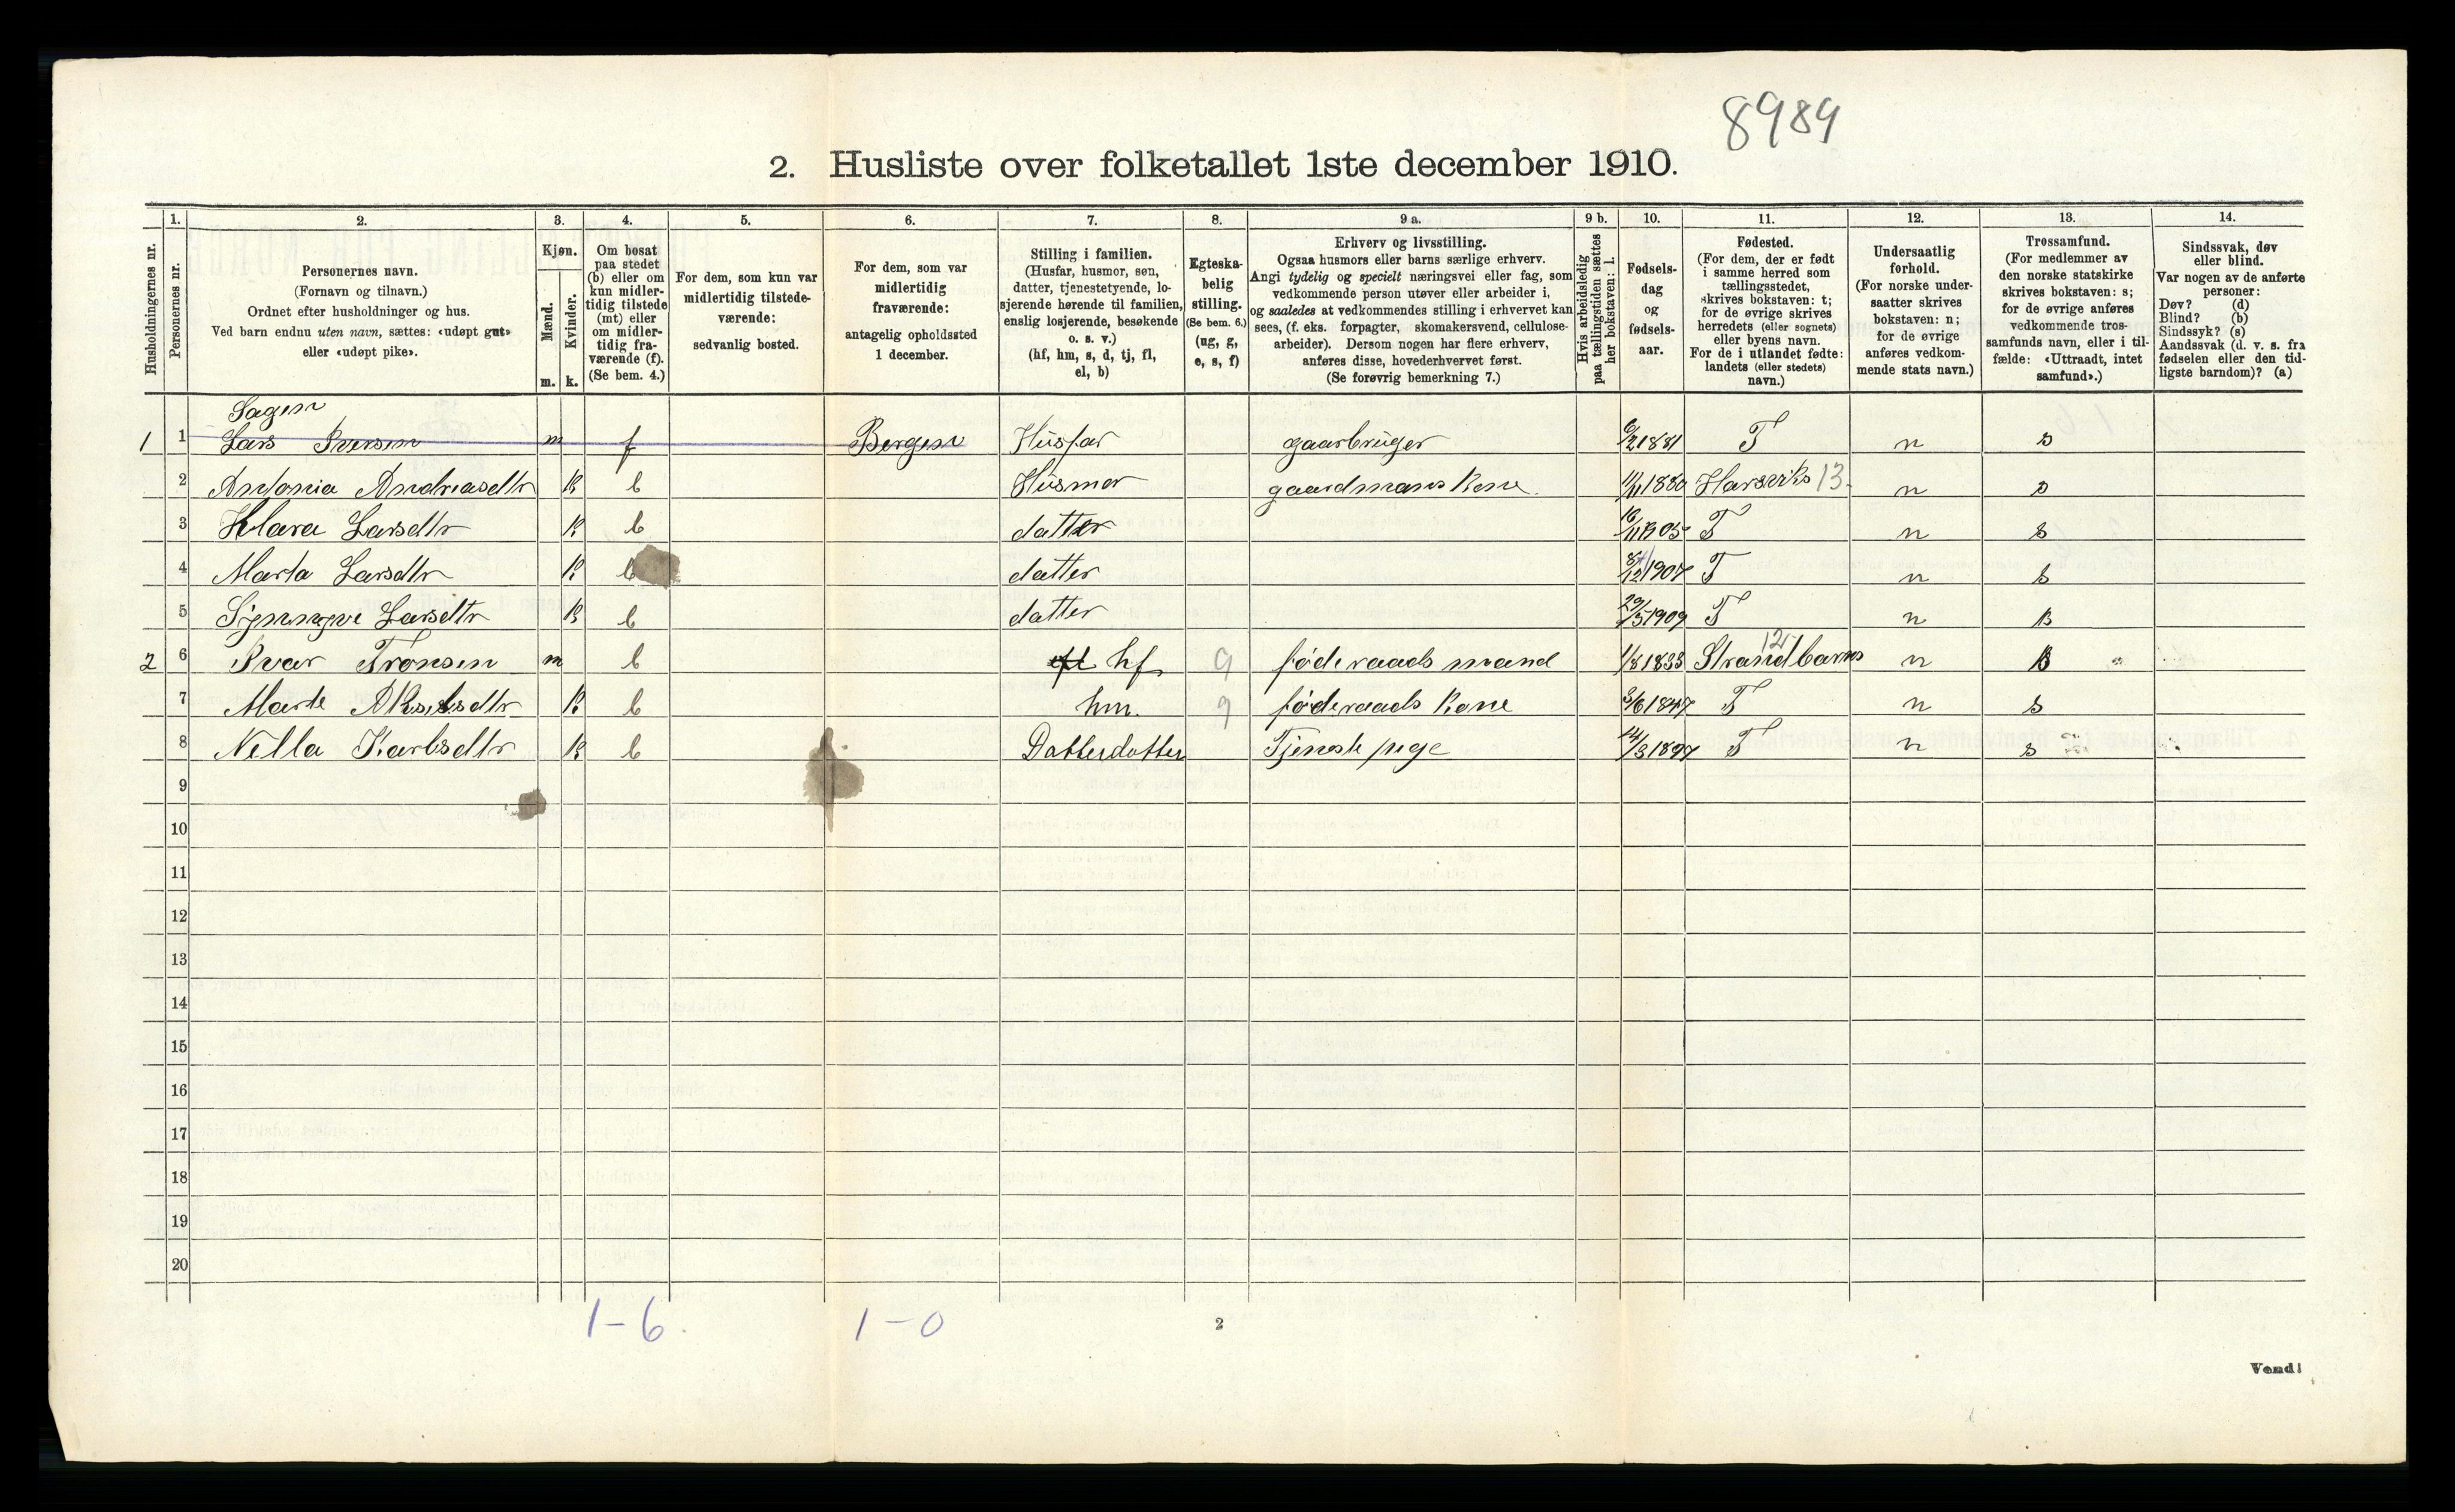 8989
2. Husliste over folketallet 1ste december 1910.
Husholdningernes nr.
1.
Personernes nr.
2.
Personernes navn.
(Fornavn og tilnavn.)
Ordnet efter husholdninger og hus.
Ved barn endnu uten navn, sættes: «udøpt gut»
eller «udøpt pike».
3.
Kjøn.
Mænd.
m.
Kvinder.
k.
4.
Om bosat
paa stedet
(b) eller om
kun midler-
tidig tilstede
(mt) eller
om midler-
tidig fra-
værende (f).
(Se bem. 4.)
5.
For dem, som kun var
midlertidig tilstede-
værende:
sedvanlig bosted.
6.
For dem, som var
midlertidig
fraværende:
antagelig opholdssted
1 december.
7.
Stilling i familien.
(Husfar, husmor, søn,
datter, tjenestetyende, lo-
sjerende hørende til familien,
enslig losjerende, besøkende
o. s. v.)
(hf, hm, s, d, tj, fl,
el, b)
8.
Egteska-
belig
stilling.
(Se bem. 6.)
(ug, g,
e, s, f)
9 a.
Erhverv og livsstilling.
Ogsaa husmors eller barns særlige erhverv.
Angi tydelig og specielt næringsvei eller fag, som
vedkommende person utøver eller arbeider i,
og saaledes at vedkommendes stilling i erhvervet kan
sees, (f. eks. forpagter, skomakersvend, cellulose-
arbeider). Dersom nogen har flere erhverv,
anføres disse, hovederhvervet først.
(Se forøvrig bemerkning 7.)
9 b.
Hvis arbeidsledig
paa tællingstiden sættes
her bokstaven: l.
10.
Fødsels-
dag
og
fødsels-
aar.
11.
Fødested.
(For dem, der er født
i samme herred som
tællingsstedet,
skrives bokstaven: t;
for de øvrige skrives
herredets (eller sognets)
eller byens navn.
For de i utlandet fødte:
landets (eller stedets)
navn.)
12.
Undersaatlig
forhold.
(For norske under-
saatter skrives
bokstaven: n;
for de øvrige
anføres vedkom-
mende stats navn.)
13.
Trossamfund.
(For medlemmer av
den norske statskirke
skrives bokstaven: s;
for de øvrige anføres
vedkommende tros-
samfunds navn, eller i til-
fælde: «Uttraadt, intet
samfund».)
14.
Sindssvak, døv
eller blind.
Var nogen av de anførte
personer:
Døv? (d)
Blind? (b)
Sindssyk? (s)
Aandssvak (d. v. s. fra
fødselen eller den tid-
ligste barndom)? (a)
Sagen
1 1 Lars Iversen m f Bergen Husfar gaarbruger 6/2 1881 T n s
2 Antonia Andreasdtr k b Husmor gaardmans kone 11/11 1880 Harsviks 13 n s
3 Klara Larsdtr k b datter 16/11 1905 T n s
4 Marta Larsdtr k b datter 1907 T n s
5 Synnøve Larsdtr k b datter 29/5 1909 T n s
2 6 Ivar Tronsen m b hf g føderaads mand 1/8 1833 Strandbarns 12 n s
7 Marte k b hm. g føderaads kone 3/6 1847 T n s
8 Nella Karlsdtr k b Datterdatter Tjeneste pige 14/3 1897 T n s
9
10
11
12
13
14
15
16
17
18
19
20
1-6 1-0
2
Vend!